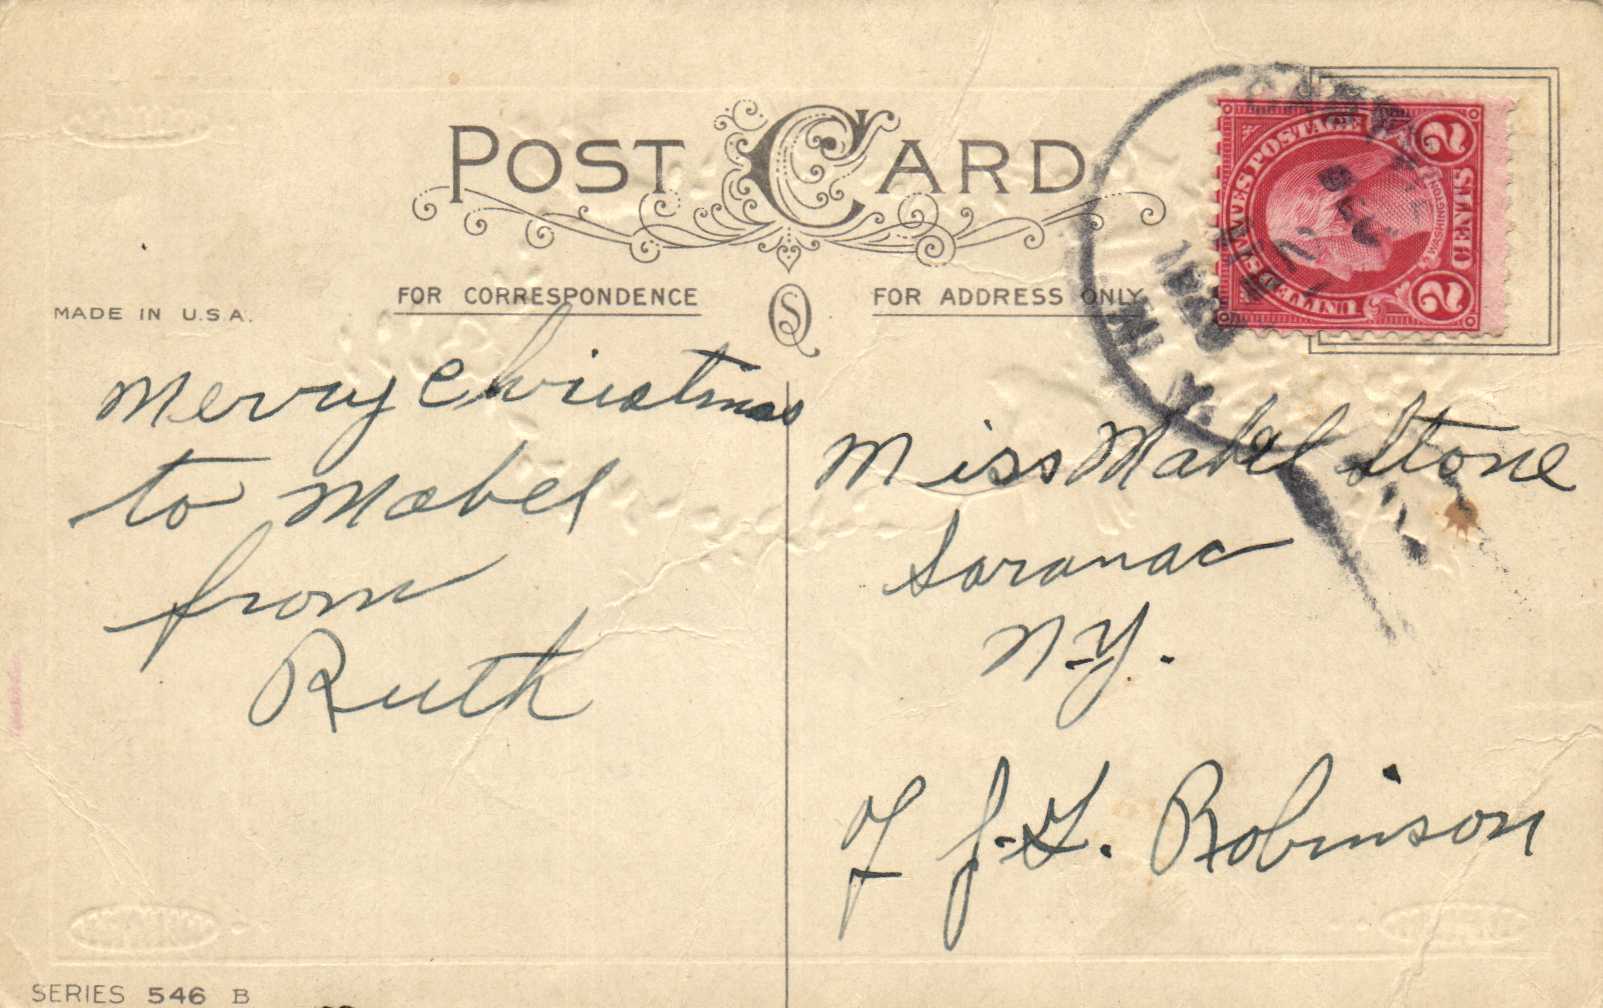 POST CARD
FOR CORRESPONDENCE
FOR ADDRESS ONLY
MADE IN U.S.A.
Merry Christmas
to Mabel
from
Ruth
Miss Mabel Stone
Saranac
N-Y.
Robinson
UNITED STATES POSTAGE
WASHINGTON
2 CENTS 2
SERIES 546 B